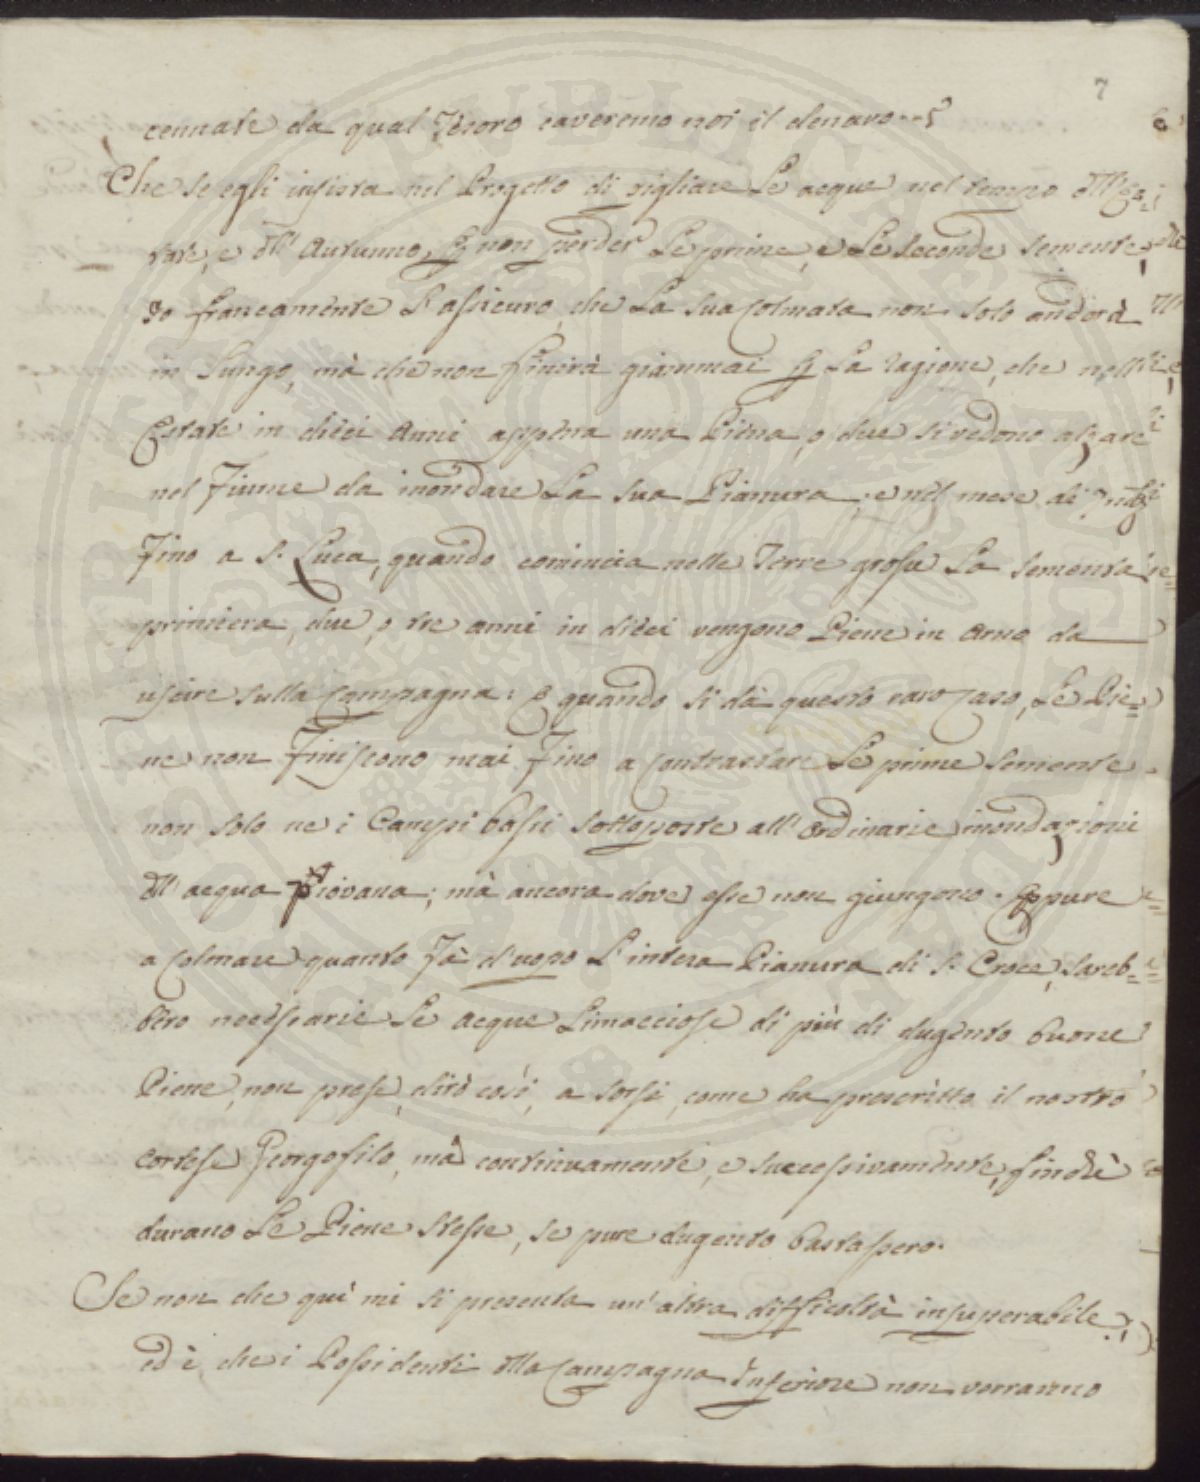 7
cennate da qual Tesoro caveremo noi il denaro..?
Che se egli insista nel Progetto di pigliare Le acque nel tempo dll' Es=
tate, e dll' Autunno, p non perder Le prime, e Le Seconde Semente;
Io francamente L' assicuro, che La sua Colmata non solo anderà
in Lungo, mà che non finirà giammai p La ragione, che nell'
Estate in dieci Anni appena una Piena, o due si vedono alzare
nel Fiume da inondare La sua Pianura; e nel mese di
Fino a S. Luca, quando comincia nelle Terre grosse La Sementa
primiera, due, o tre anni in dieci vengono Piene in Arno da
uscire sulla Campagna: E quando si dà questo raro Caso, Le Pie=
ne non Finiscono mai Fino a contrastare Le prime Semente
non solo ne i Campi bassi sottoposte all' Ordinarie inondazioni
dll' acqua piovana; mà ancora dove esse non giungono. Eppure
a Colmare quanto Fà d'uopo L' intera Pianura di S. Croce, sareb=
bero necessarie Le Acque Limacciose di più di dugento buone
Piene, non prese, dirò così, a sorsi, come ha prescritto il nostro
Cortese Georgofilo, mà continuamente, e successivamente, finchè
durano Le Piene stesse, se pure dugento bastassero.
Se non che quì mi si presenta un' altra difficoltà insuperabile;
ed è, che i Possidenti dlla Campagna Inferiore non vorranno